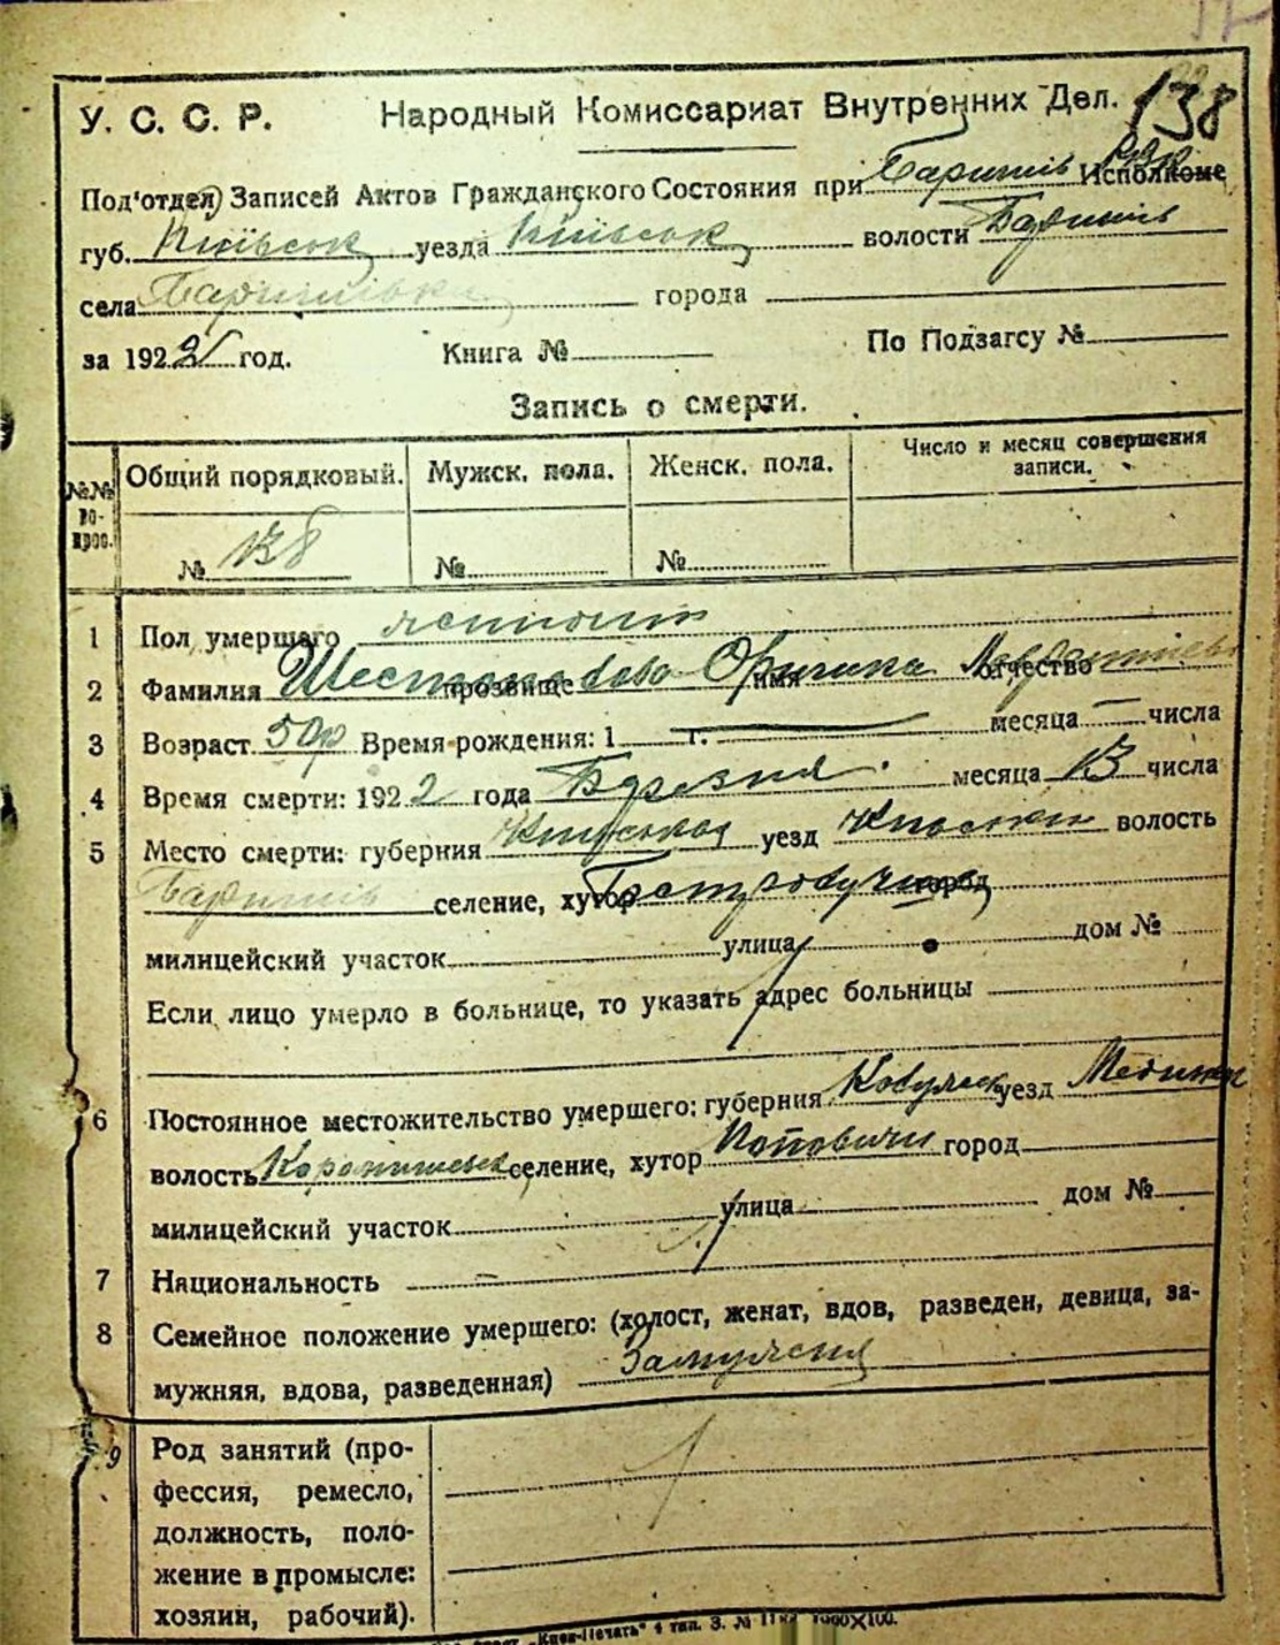 138
У. С. С. Р. Народный Комиссариат Внутренних Дел.
Под'отдел Записей Актов Гражданского Состояния при Баришів РВК Исполкоме
губ. Київськ уезда Київськ волости Баришів
села Баришівка города
за 1922 год. Книга № По Подзагсу №
Запись о смерти.
№№ вопрос. Общий порядковый. Мужск. пола. Женск. пола. Число и месяц совершения записи.
№ 138 № №
1 Пол умершего
2 Фамилия прозвище имя отчество
3 Возраст 50р Время рождения: 1 г. — месяца — числа
4 Время смерти: 1922 года Березня месяца 13 числа
5 Место смерти: губерния Київська уезд волость
Баришів селение, хутор город
милицейский участок улица дом №
Если лицо умерло в больнице, то указать адрес больницы
6 Постоянное местожительство умершего: губерния уезд
волость селение, хутор Поповичи город
милицейский участок улица дом №
7 Национальность –
8 Семейное положение умершего: (холост, женат, вдов, разведен, девица, за-
мужняя, вдова, разведенная) Замужня
9 Род занятий (про-
фессия, ремесло,
должность, поло-
жение в промысле:
хозяин, рабочий).
„Киев-Печать“ 4 тип. З. № 1000X100.